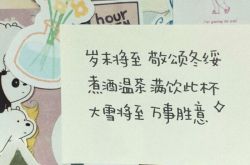 hour
岁末将至 敬颂冬绥
煮酒温茶 满饮此杯
大雪将至 万事胜意